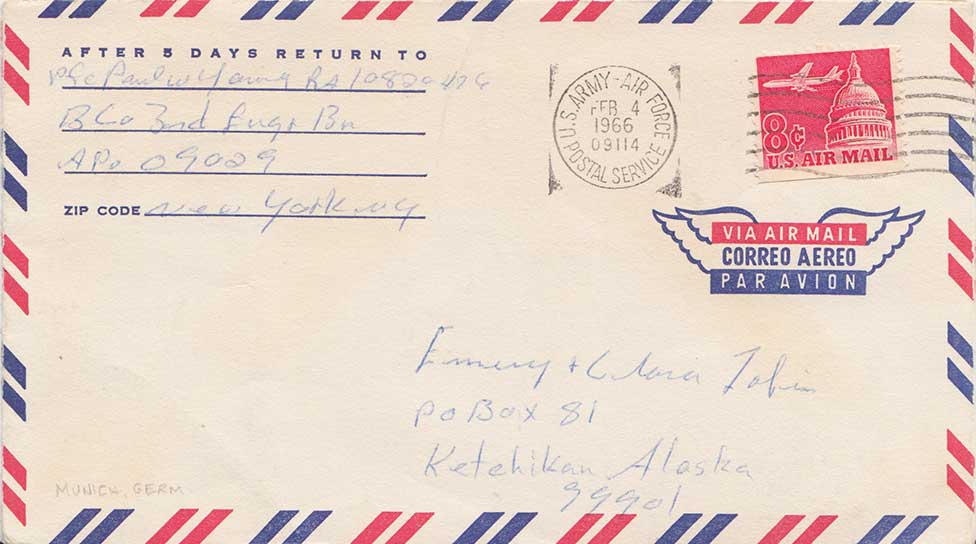 AFTER 5 DAYS RETURN TO
Pfc Paul W Young RA 10820426
B Co 3rd Engr Bn
APo 09029
ZIP CODE New York NY
U.S. ARMY-AIR FORCE
FEB 4
1966
09114
POSTAL SERVICE
8¢
U.S. AIR MAIL
VIA AIR MAIL
CORREO AEREO
PAR AVION
Emery + Clara Tobin
PO Box 81
Ketchikan Alaska
99901
MUNICH, GERM